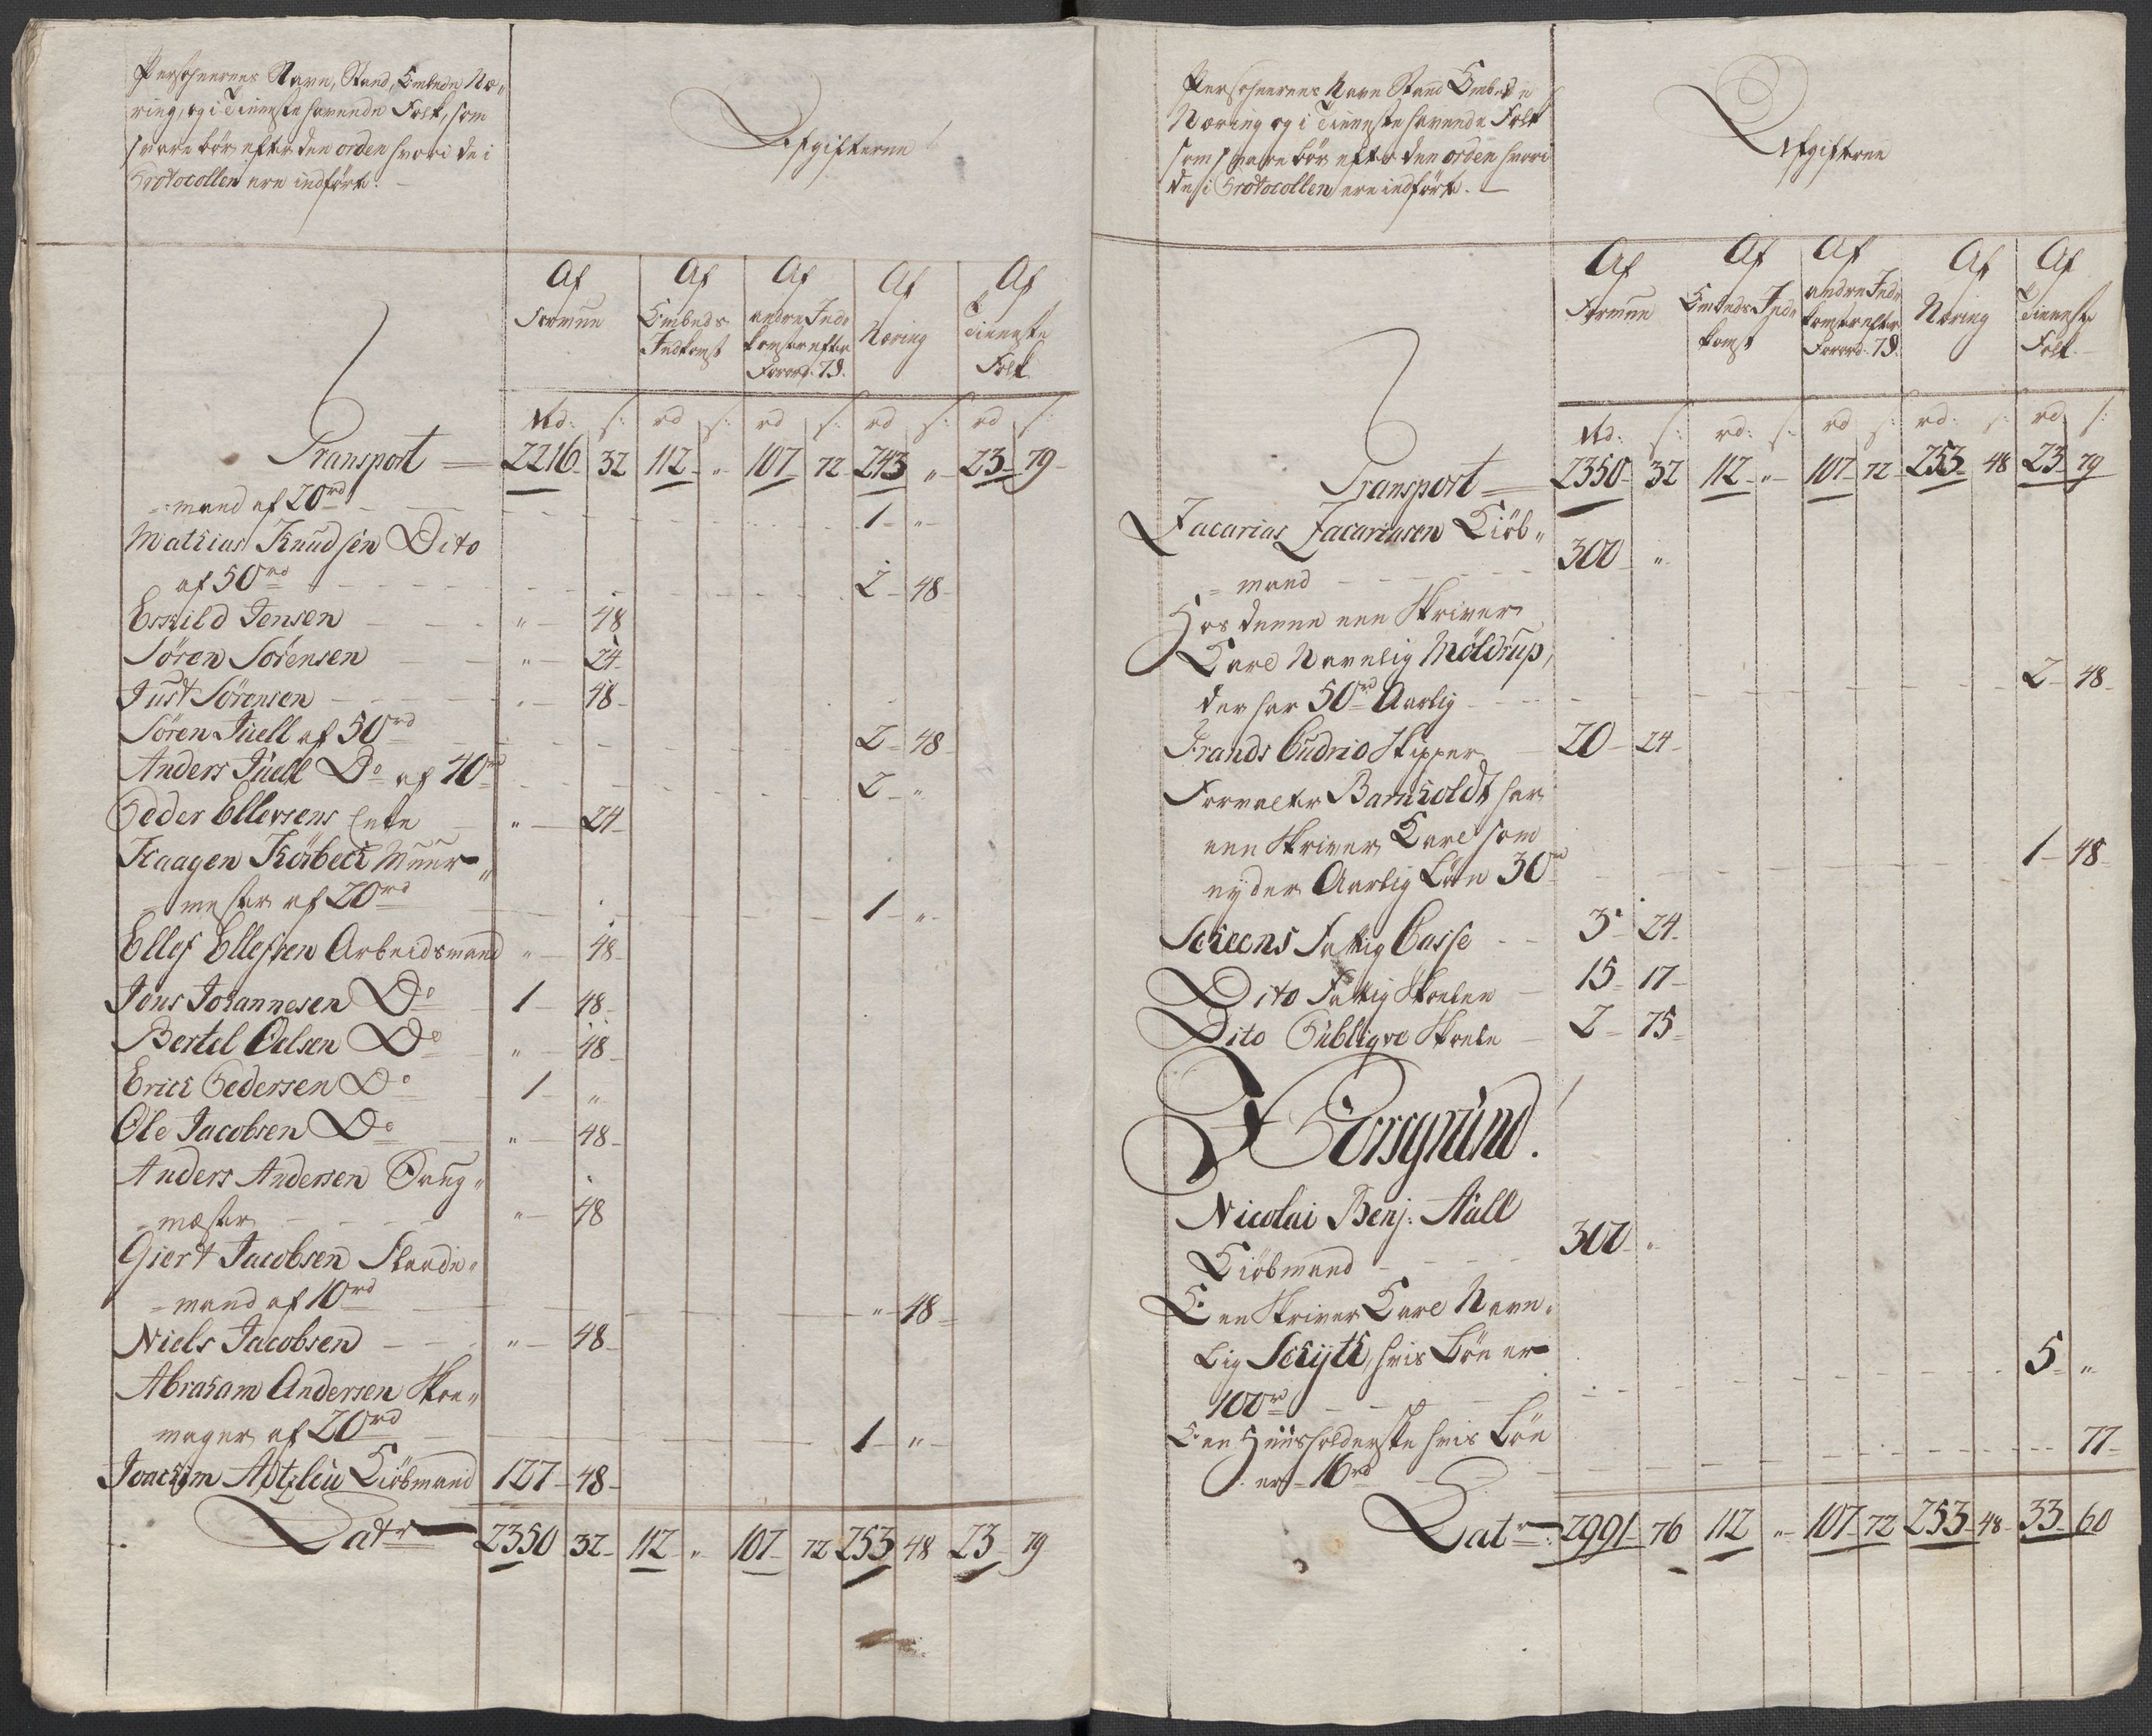 Persohnernes Navn, Stand, Embede Næ-
ring, og i Tieneste havende Folk, som
svare bör efter den orden hvori de i
Protocollen ere indförte.
Afgifterne
Af Formue
Af Embeds Indkomst
Af andre Ind-komster efter Forord: 7 §.
Af Næring
Af Tieneste Folk
Rd: s: rd s: rd s: rd s: rd s:
Transport 2216 32 112 " 107 72 243 " 23 79
mand af 20rd 1 "
Mathias Knudsen Dito
af 50rd 2 48
Eskild Jensen " 48
Sören Sörensen " 24
Just Sörensen " 48
Sören Juell af 50rd 2 48
Anders Juell Do af 40rd 2 "
Peder Ellevsens Enke " 24
Haagen Körbeck Muur-
mester af 20rd 1 "
Ellef Ellefsen Arbeidsmand " 48
Jens Johannesen Do 1 48
Bertel Oelsen Do " 48
Erich Pedersen Do 1 "
Ole Jacobsen Do " 48
Anders Andersen
mester " 48
Giert Jacobsen
mand af 10rd " 48
Niels Jacobsen " 48
Abraham Andersen Skoe-
mager af 20rd 1 "
Joachim Kiöbmand 127 48
Latr 2350 32 112 " 107 72 253 48 23 79
Persohnernes Navn Stand Embede
Næring og i Tieneste havende Folk
som svare bör efter den orden hvori
de i Protocollen ere indförte.
Afgifterne
Af Formue
Af Embeds Ind-komst
Af andre Ind-komster efter Forord: 7 §.
Af Næring
Af Tieneste Folk
Rd: s: rd: s: rd s: rd: s: rd s:
Transport 2350 32 112 " 107 72 253 48 23 79
Zacarias Zacariasen Kiöb-
mand 300 "
Hos denne een Skriver
Karl Navnlig Möldrup,
der har 50rd Aarlig 2 48
Frands Cudrio Skipper 20 24
Forvalter Barnholdt har
een Skriver Karl som
nyder Aarlig Lön 30rd 1 48
Scheens Fattig Casse 3 24
Dito Fattig Skolen 15 17
Dito Publiqve Skole 2 75
Porsgrund.
Nicolai Benj: Aall
Kiöbmand 300 "
Een Skriver Karl Navn-
lig Schÿth, hvis Lön er
100rd 5 "
Een Huusholderske hvis Lön
er 16rd 77
Latr 2991 76 112 " 107 72 253 48 33 60